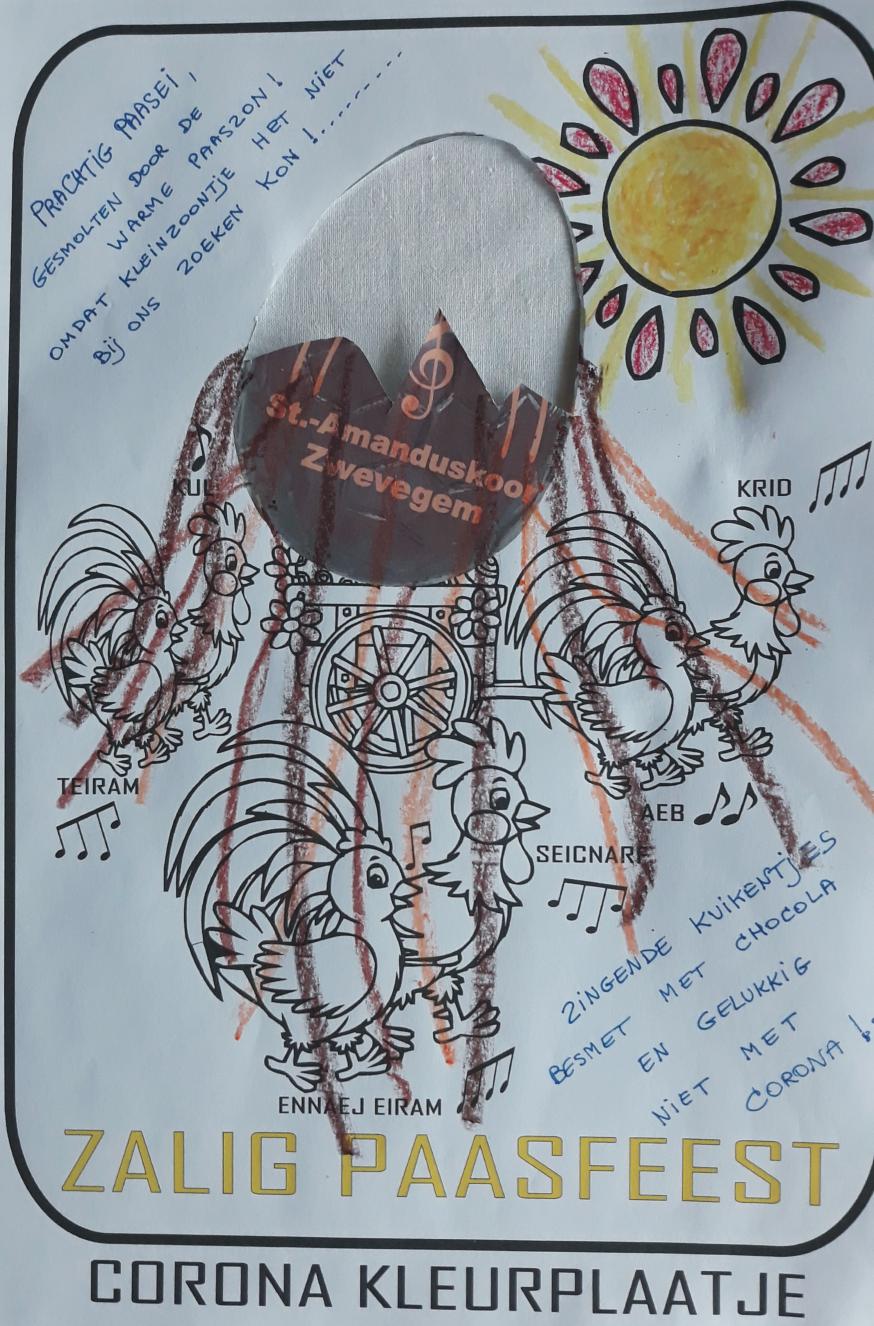 PRACHTIG PAASEI,
GESMOLTEN DOOR DE
WARME PAASZON!
OMDAT KLEINZOONTJE HET NIET
BIJ ONS ZOEKEN KON!.........
St.-Amanduskoor
Zwevegem
KUL
KRID
TEIRAM
AEB
SEICNARF
ZINGENDE KUIKENTJES
BESMET MET CHOCOLA
EN GELUKKIG
NIET MET
CORONA!..
ENNAEJ EIRAM
ZALIG PAASFEEST
CORONA KLEURPLAATJE